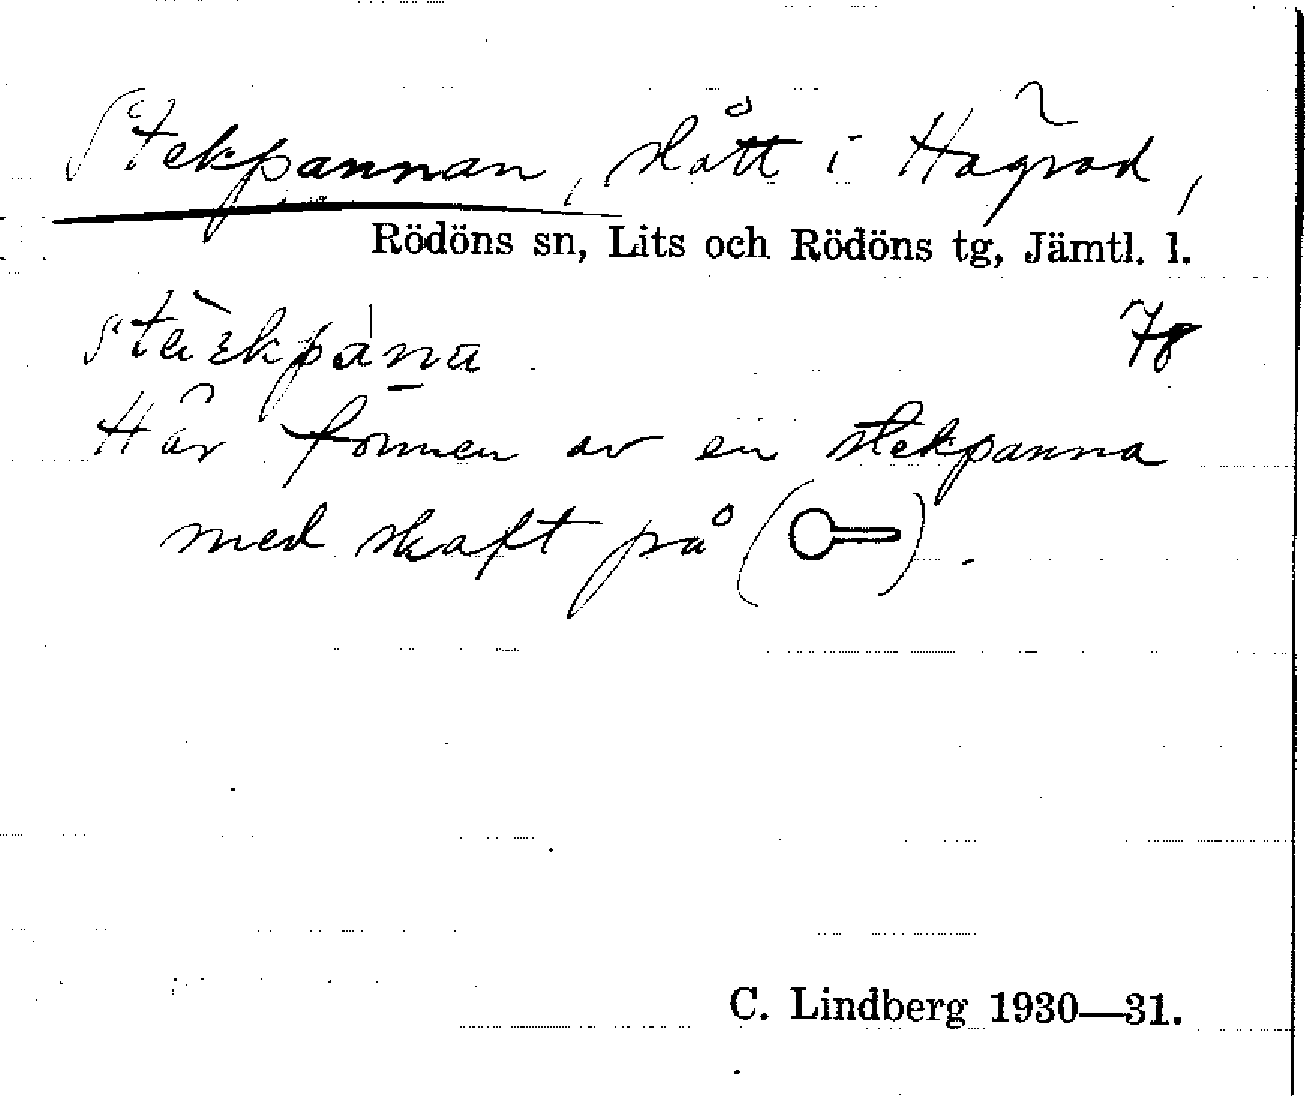 Stekpannan, slått i Högrad,
Rödöns sn, Lits och Rödöns tg, Jämtl. l.
78
Har formen av en stekpanna
med skaft på ( ).
C. Lindberg 1930—31.